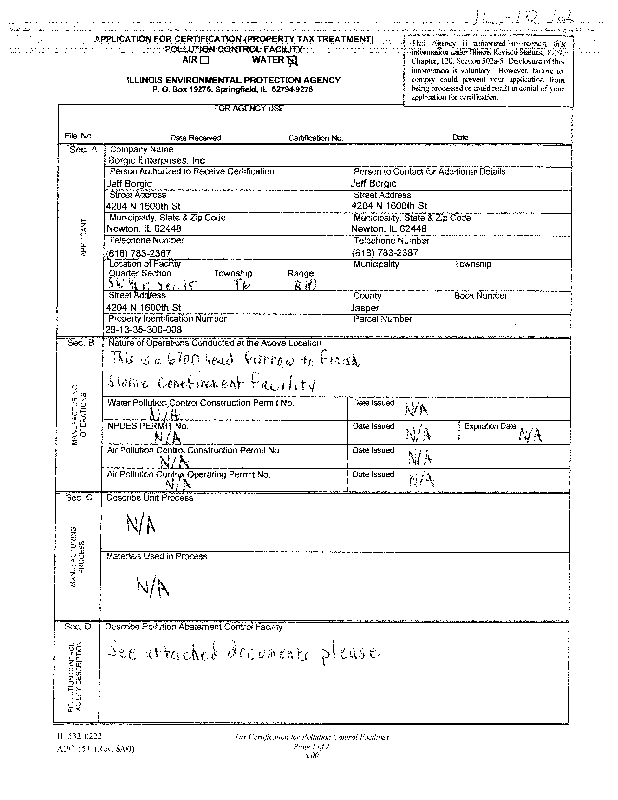 APPLICATION FOR CERTIFICATION (PROPERTY TAX TREATMENT)
POLLUTION CONTROL FACILITY
AIR ☐ WATER ☒
ILLINOIS ENVIRONMENTAL PROTECTION AGENCY
P. O. Box 19276, Springfield, IL 62794-9276
This Agency is authorized to request this
information under Illinois Revised Statutes, 1979,
Chapter, 120, Section 502a-5. Disclosure of this
information is voluntary. However, failure to
comply could prevent your application from
being processed or could result in denial of your
application for certification.
FOR AGENCY USE
File No. Date Received Certification No. Date
Sec. A Company Name
Borgic Enterprises, Inc
Person Authorized to Receive Certification Person to Contact for Additional Details
Jeff Borgic Jeff Borgic
Street Address Street Address
4204 N 1600th St 4204 N 1600th St
Municipality, State & Zip Code Municipality, State & Zip Code
Newton, IL 62448 Newton, IL 62448
Telephone Number Telephone Number
(618) 783-2387 (618) 783-2387
APPLICANT
Location of Facility Municipality Township
Quarter Section Township Range
Street Address County Book Number
4204 N 1600th St Jasper
Property Identification Number Parcel Number
Sec. B Nature of Operations Conducted at the Above Location
This is a 6700 head Farrow to Finish
Swine Confinement Facility
MANUFACTURING OPERATIONS
Water Pollution Control Construction Permit No. Date Issued
N/A N/A
NPDES PERMIT No. Date Issued Expiration Date
N/A N/A N/A
Air Pollution Control Construction Permit No. Date Issued
N/A N/A
Air Pollution Control Operating Permit No. Date Issued
N/A N/A
Sec. C Describe Unit Process
N/A
MANUFACTURING PROCESS
Materials Used in Process
N/A
Sec. D Describe Pollution Abatement Control Facility
See attached documents please
POLLUTION CONTROL FACILITY DESCRIPTION
IL 532-0222 Tax Certification for Pollution Control Facilities
Page 1 of 2